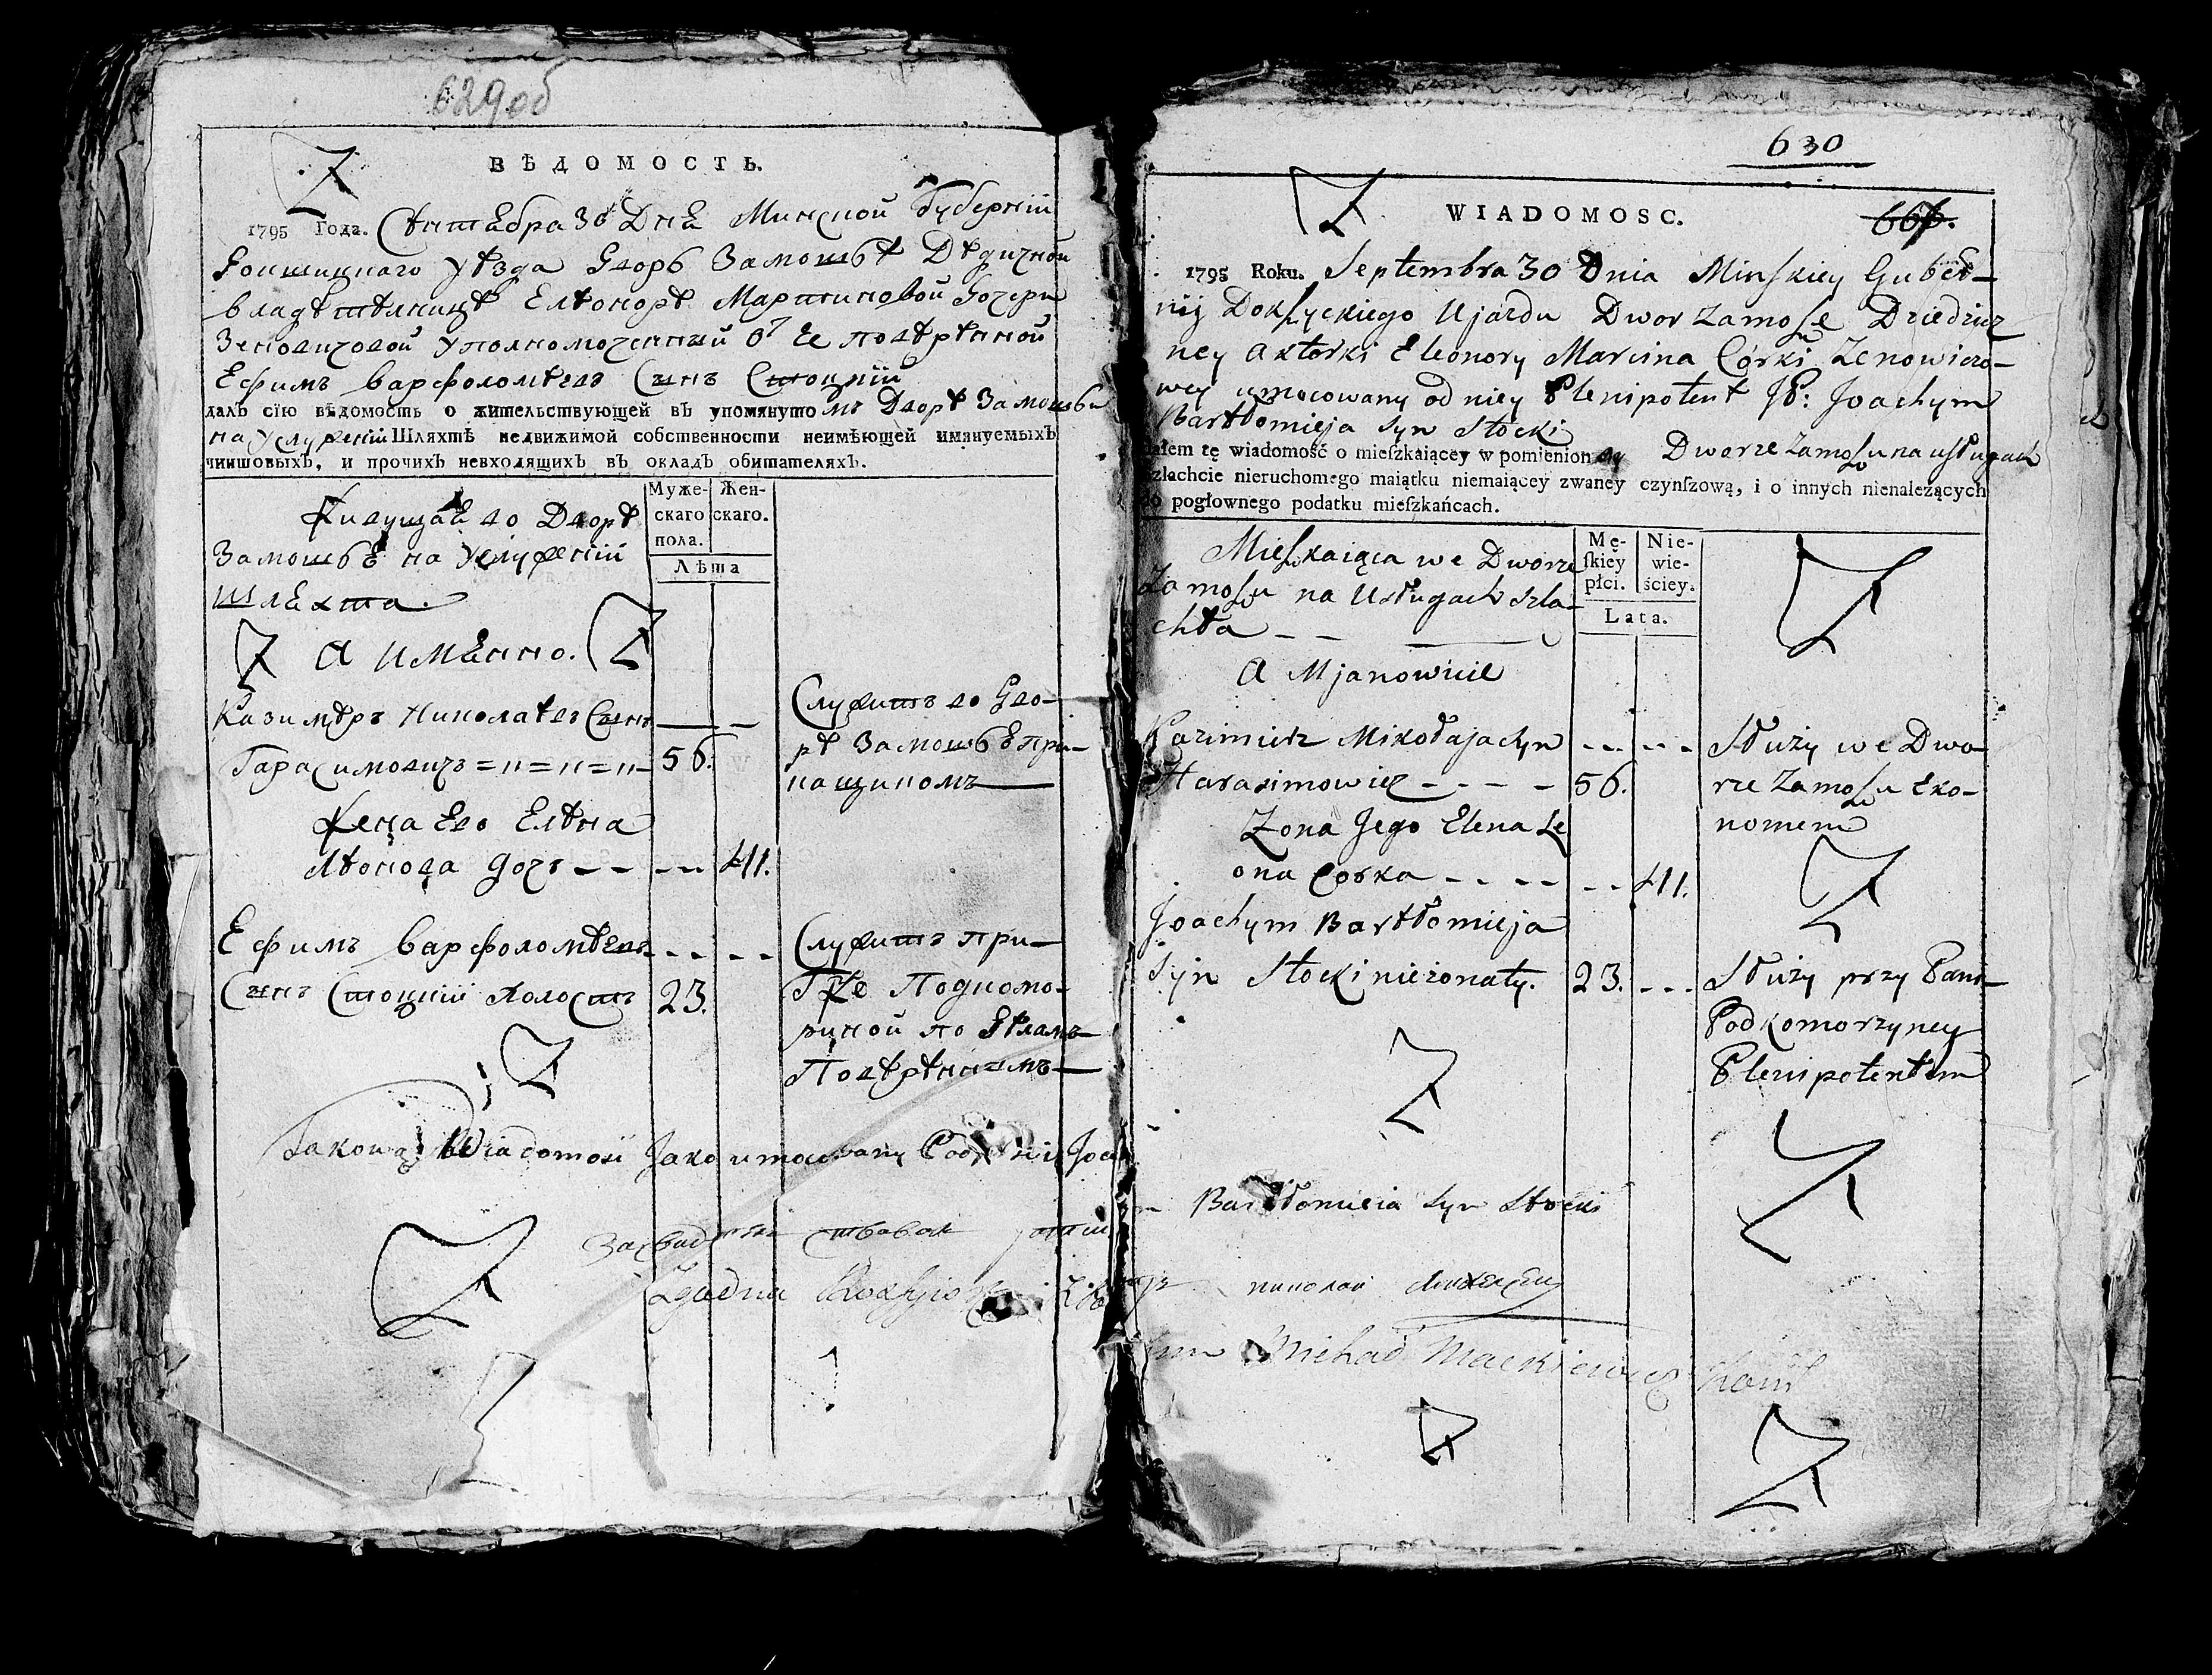 629 об
ВѢДОМОСТЬ.
1795 Года. Сентебра 30 Днѣ Минской Губерніи
Докшицкаго Уѣзда Дворъ Замошьѣ Дѣдичной
владѣтелницѣ Елѣонорѣ Мартиновой Дочери
Зеновичовой Уполномоченный отъ Ее повѣрѣнной
Ефимъ варфоломѣевъ Сынъ Стоцкій
далъ сію вѣдомость о жительствующей въ упомянутомъ Дворѣ Замошьи
на Услуженіи Шляхтѣ недвижимой собственности неимѣющей имянуемыхъ
чиншовыхъ, и прочихъ невходящихъ въ окладъ обитателяхъ.
Муже-скаго пола. Жен-скаго.
Лѣта
Живущаѣ во Дворѣ
Замошьѣ на Услуженіи
шлѣхта.
а имѣнно.
Казимѣръ Николаѣвъ Сынъ
Гарасимовичъ 56.
Служитъ во Дво-
рѣ Замошьѣ при-
кащикомъ
Жена Ево Елѣна
Лѣонова дочъ - - - - 41.
Ефимъ варфоломѣевъ - - - -
Сынъ Стоцкій Холостъ 23.
Служитъ при
Гже Подкомо-
риной по Дѣламъ
Повѣрѣннымъ
Takową Wiadomość Jako umocowany Podpisuię Joachym
630
WIADOMOSC.
667.
1795 Roku. Septembra 30 Dnia Minskiey Guber-
nij Dokszyckiego Ujazdu Dwor Zamosze Dziedzicz
ney aktorki Eleonory Marcina Córki Zenowiczo-
wey umocowany od niey Plenipotent JP: Joachym
Bartłomieja Syn Stocki
dałem tę wiadomość o mieſzkaiącey w pomienionym Dworze Zamoszu na usługach
szlachcie nieruchomego maiątku niemaiącey zwaney czynſzową, i o innych nienależących
do pogłownego podatku mieſzkańcach.
Mę-ſkiey płci. Nie-wie-ściey.
Lata.
Mieszkaiąca we Dworze
Zamoszu na Usługach szla-
chta - -
a Mjanowicie
Kazimierz Mikołaja Syn - - - - -
Harasimowicz - - - - 56.
Służy we Dwo-
rze Zamoszu Eko-
nomem
Zona Jego Elena Le
ona Corka - - - - - - 41.
Joachym Bartłomieja
Syn Stocki nieżonaty. 23. - - -
Służy przy Pani
Podkomorzyney
Plenipotentem
Bartłomieia Syn Stocki
николай
Michał Mackiewicz